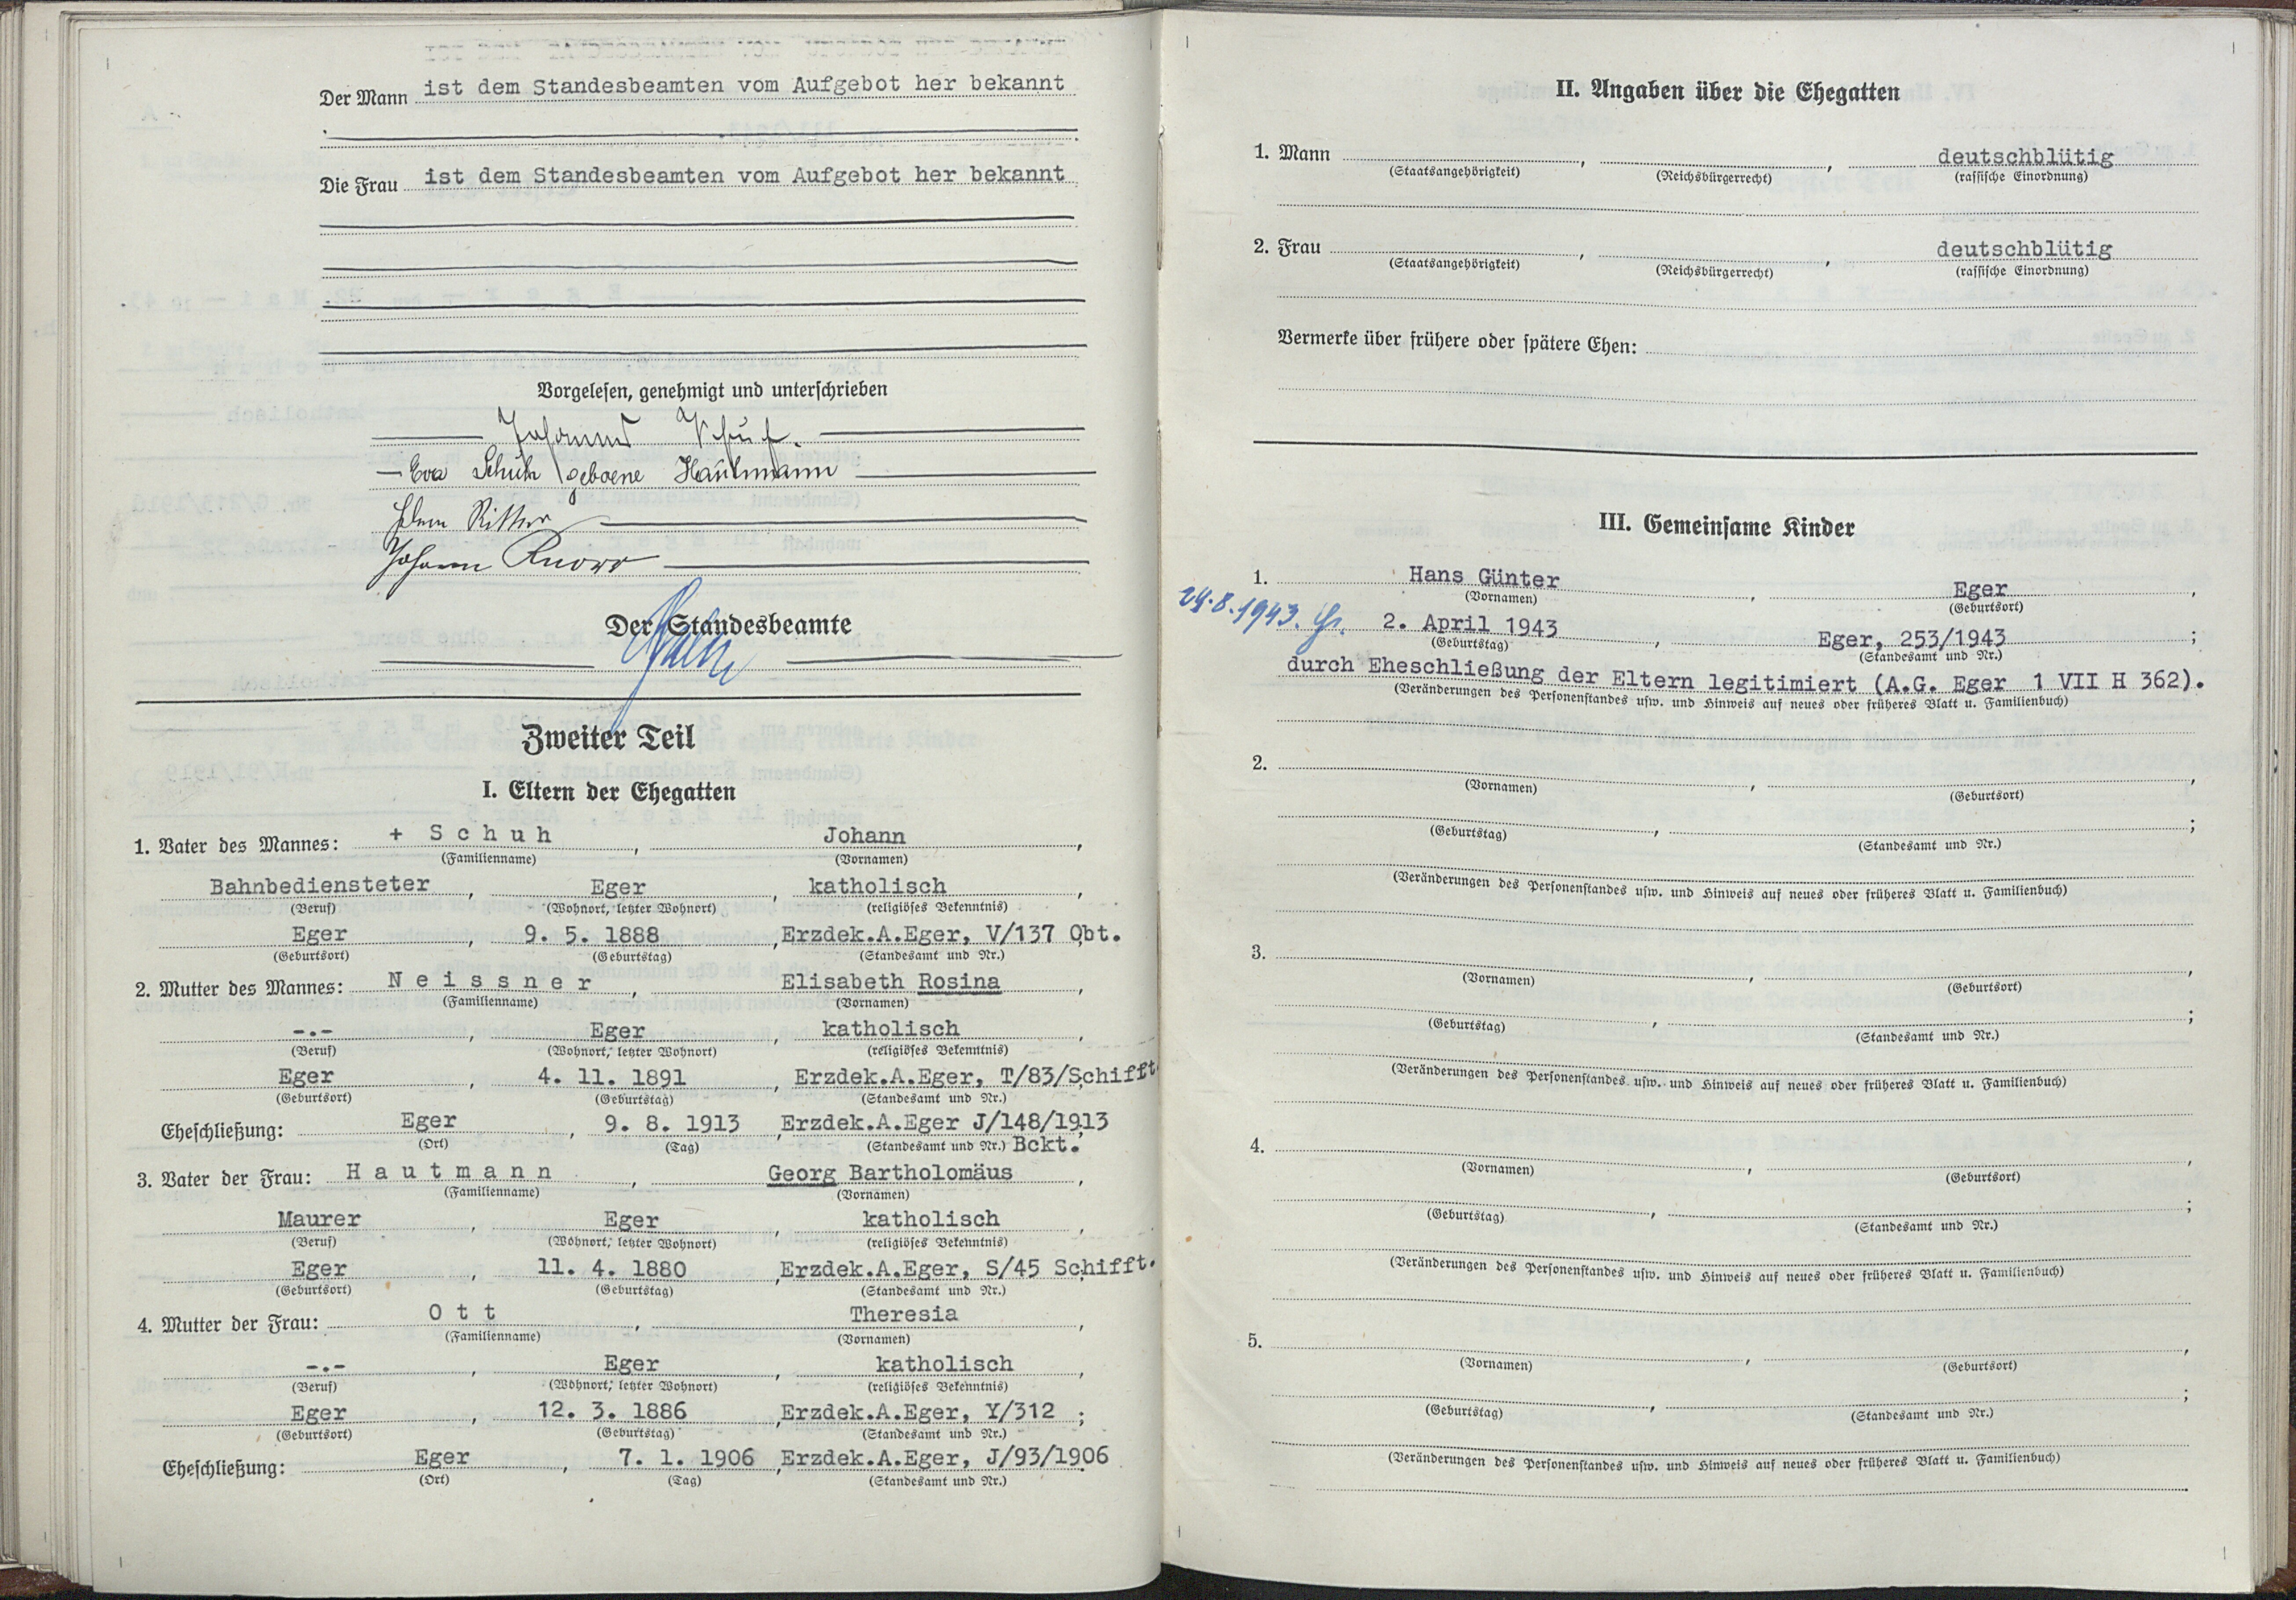 Der Mann ist dem Standesbeamten vom Aufgebot her bekannt
Die Frau ist dem Standesbeamten vom Aufgebot her bekannt
Vorgelesen, genehmigt und unterschrieben
Johann Schuh.
Eva Schuh geborene Hautmann
Ritter
Johann Knorr
Der Standesbeamte
Zweiter Teil
I. Eltern der Ehegatten
1. Vater des Mannes: + Schuh, Johann,
(Familienname) (Vornamen)
Bahnbediensteter, Eger, katholisch,
(Beruf) (Wohnort, letzter Wohnort) (religiöses Bekenntnis)
Eger, 9. 5. 1888, Erzdek.A.Eger, V/137 Obt.
(Geburtsort) (Geburtstag) (Standesamt und Nr.)
2. Mutter des Mannes: Neissner, Elisabeth Rosina,
(Familienname) (Vornamen)
-.-, Eger, katholisch,
(Beruf) (Wohnort, letzter Wohnort) (religiöses Bekenntnis)
Eger, 4. 11. 1891, Erzdek.A.Eger, T/83/Schifft.
(Geburtsort) (Geburtstag) (Standesamt und Nr.)
Eheschließung: Eger, 9. 8. 1913, Erzdek.A.Eger J/148/1913
(Ort) (Tag) (Standesamt und Nr.) Bckt.
3. Vater der Frau: Hautmann, Georg Bartholomäus,
(Familienname) (Vornamen)
Maurer, Eger, katholisch,
(Beruf) (Wohnort, letzter Wohnort) (religiöses Bekenntnis)
Eger, 11. 4. 1880, Erzdek.A.Eger, S/45 Schifft.
(Geburtsort) (Geburtstag) (Standesamt und Nr.)
4. Mutter der Frau: Ott, Theresia,
(Familienname) (Vornamen)
-.-, Eger, katholisch,
(Beruf) (Wohnort, letzter Wohnort) (religiöses Bekenntnis)
Eger, 12. 3. 1886, Erzdek.A.Eger, Y/312;
(Geburtsort) (Geburtstag) (Standesamt und Nr.)
Eheschließung: Eger, 7. 1. 1906, Erzdek.A.Eger, J/93/1906
(Ort) (Tag) (Standesamt und Nr.)
II. Angaben über die Ehegatten
1. Mann, , deutschblütig
(Staatsangehörigkeit) (Reichsbürgerrecht) (rassische Einordnung)
2. Frau, , deutschblütig
(Staatsangehörigkeit) (Reichsbürgerrecht) (rassische Einordnung)
Vermerke über frühere oder spätere Ehen:
III. Gemeinsame Kinder
1. Hans Günter, Eger,
(Vornamen) (Geburtsort)
24.8.1943. 2. April 1943, Eger, 253/1943;
(Geburtstag) (Standesamt und Nr.)
durch Eheschließung der Eltern legitimiert (A.G. Eger 1 VII H 362).
(Veränderungen des Personenstandes usw. und Hinweis auf neues oder früheres Blatt u. Familienbuch)
2. , ,
(Vornamen) (Geburtsort)
, ;
(Geburtstag) (Standesamt und Nr.)
(Veränderungen des Personenstandes usw. und Hinweis auf neues oder früheres Blatt u. Familienbuch)
3. , ,
(Vornamen) (Geburtsort)
, ;
(Geburtstag) (Standesamt und Nr.)
(Veränderungen des Personenstandes usw. und Hinweis auf neues oder früheres Blatt u. Familienbuch)
4. , ,
(Vornamen) (Geburtsort)
, ;
(Geburtstag) (Standesamt und Nr.)
(Veränderungen des Personenstandes usw. und Hinweis auf neues oder früheres Blatt u. Familienbuch)
5. , ,
(Vornamen) (Geburtsort)
, ;
(Geburtstag) (Standesamt und Nr.)
(Veränderungen des Personenstandes usw. und Hinweis auf neues oder früheres Blatt u. Familienbuch)